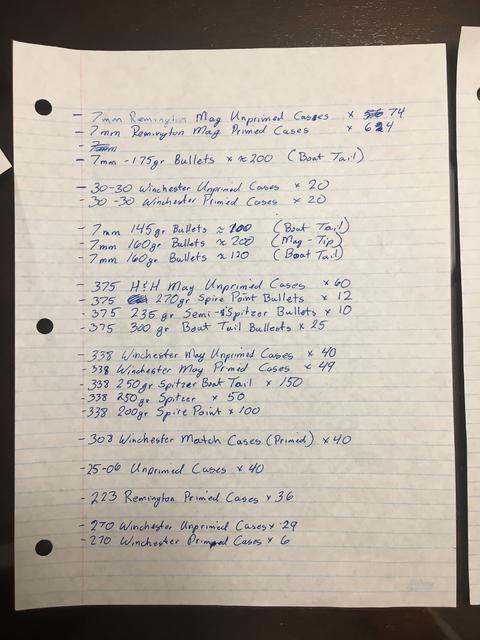 - 7mm Remington Mag Unprimed Cases × 74
- 7mm Remington Mag Primed Cases × 64
- 7mm
- 7mm - 175gr Bullets × ≈ 200 (Boat Tail)
- 30-30 Winchester Unprimed Cases × 20
- 30-30 Winchester Primed Cases × 20
- 7mm 145gr Bullets ≈ 100 (Boat Tail)
- 7mm 160gr Bullets ≈ 200 (Mag-Tip)
- 7mm 160gr Bullets ≈ 120 (Boat Tail)
- 375 H&H Mag Unprimed Cases × 60
- 375 270gr Spire Point Bullets × 12
- 375 235gr Semi-Spitzer Bullets × 10
- 375 300gr Boat Tail Bullests × 25
- 338 Winchester Mag Unprimed Cases × 40
- 338 Winchester Mag Primed Cases × 49
- 338 250gr Spitzer Boat Tail × 150
- 338 250gr Spitzer × 50
- 338 200gr Spire Point × 100
- 308 Winchester Match Cases (Primed) × 40
- 25-06 Unprimed Cases × 40
- 223 Remington Primed Cases × 36
- 270 Winchester Unprimed Cases × 29
- 270 Winchester Primed Cases × 6